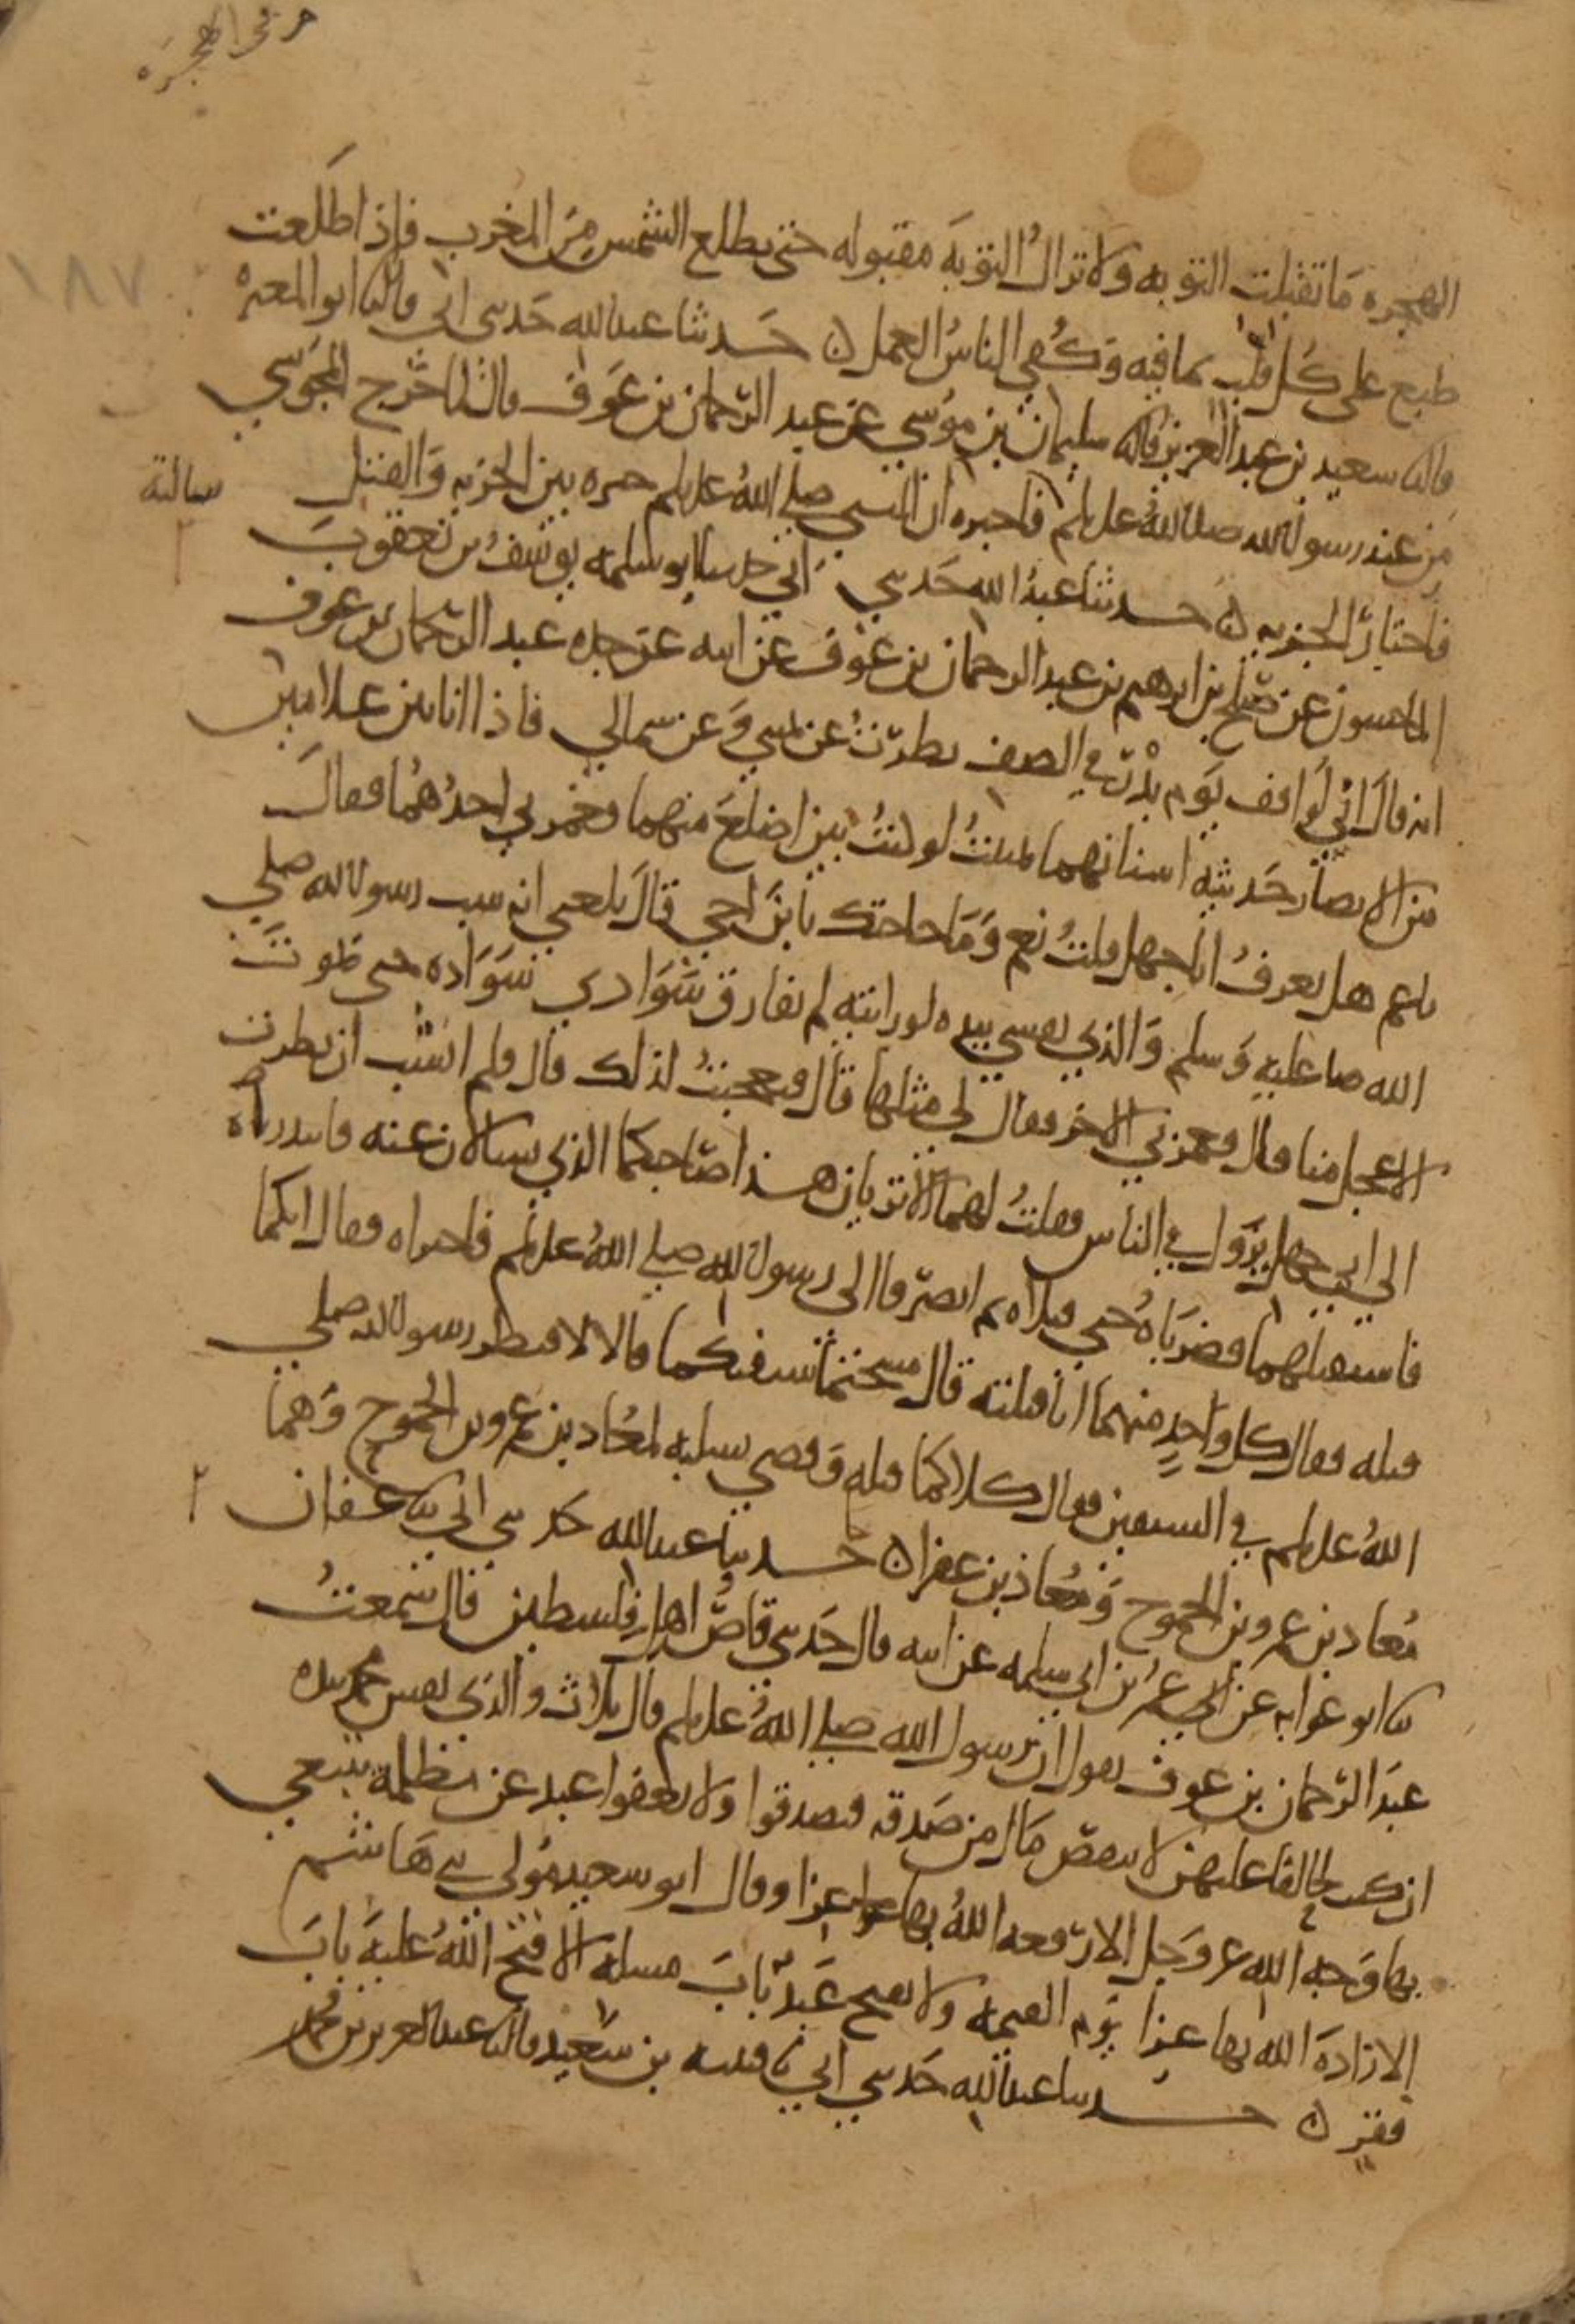 من في الهجرة
١٨٧
الهجره ما تقبلت التوبه ولا تزالُ التوبةَ مقبوله حتى يطلع الشمس منَ المغرب فاذا طلَعت
طبع على كل قلب بما فيه وكُفي الناسُ العمل ن حَدثنا عبدالله حَدثنى ابى قال نا ابو المغيره
قال نا سعيد بن عبد العزيز قال نا سليمان بن موسي عن عبد الرحمان بن عَوف قال لما خَرج المجوسي
من عند رسول الله صلى الله عليه وسلم سالته فاخبره ان النبي صلي اللهُ عليه وسلم خيره بين الجزيه وَالقتل
فاختار الجزيه ن حدثنا عبدُ الله حَدثني ابي حدثنا ابو سلمه يوسفُ بن يَعقوبَ
الماجشون عن صَالح بن ابرهيم بن عبد الرحمان بن عوف عن ابيه عن جده عبد الرحمان بن عوف
انه قالَ اني لَواقف يوم بدْر في الصف نظرتُ عن يميني وَعن شمالي فاذا انا بين غلامين
من الانصار حَديثه اسنانهما تمنيتُ لو كنتُ بين اضلعَ منهما فغمزني احدُهُما فقالَ
يا عم هل تعرفُ ابا جهل قلتُ نعم وَمَا حاجتك يا بنَ اخي قالَ بلغني انه سب رسول الله صلي
الله صلى عليه وَسلم وَالذي نفسي بيده لو رايته لم يفارق سَوَادي سَوَاده حتى يموتَ
الاعجل منا قال فغمزني الاخر فقال لي مثلها قال فتعجبتُ لذلك قال فلم انشب ان نظرت
الي ابي جهل يزول في الناس فقلتُ لهما الا تريان هذا صاحبكما الذي تسالان عنه فابتدراه
فاستقبلهما فضربَاهُ حتي قتلاه ثم انصرفا الى رسول الله صلي اللهُ عليه وسلم فاخبراه فقال ايكما
قتله فقال كل واحدٍ منهما انا قتلته قال مسحتما سيفيكما قالا لا فنظر رسول الله صلي
اللهُ عليه وسلم في السيفين فقال كلاكما قتله وَقضي بسلبه لمعُاذ بن عمرو بن الجموح وَهما
مُعاذ بن عمرو بن الجموح وَمُعاذ بن عفرا ن حَدثنا عبدالله حَدثني ابي نا عفان
نا ابو عوانه عن عمر بن ابي سلمه عن ابيه قال حَدثني قاصُّ اهل فِلسطين قال سَمعتُ
عبدَ الرّحمان بن عوف يقول ان رسول الله صلي اللهُ عليه وسلم قال ثلاث والذي نفس محمد بيده
ان كنت لحالفا عليهن لا ينقص مَال من صَدقه فتصدقوا ولا يعفوا عبد عن مظلمة يبتغي
بها وَجه الله عز وَجل الا رَفعه اللهُ بها عزا وقال ابو سعيد مَولي بني هَاشم
الا زادَه الله بها عِزا يَوم القيمه ولا يفتح عَبدٌ بابَ مسله الا فتح اللهُ عليه بابَ
فقر ن حَدثنا عبدالله حَدثني ابي نا قتيبه بن سَعيد قال نا عبد العزيز بن محمد